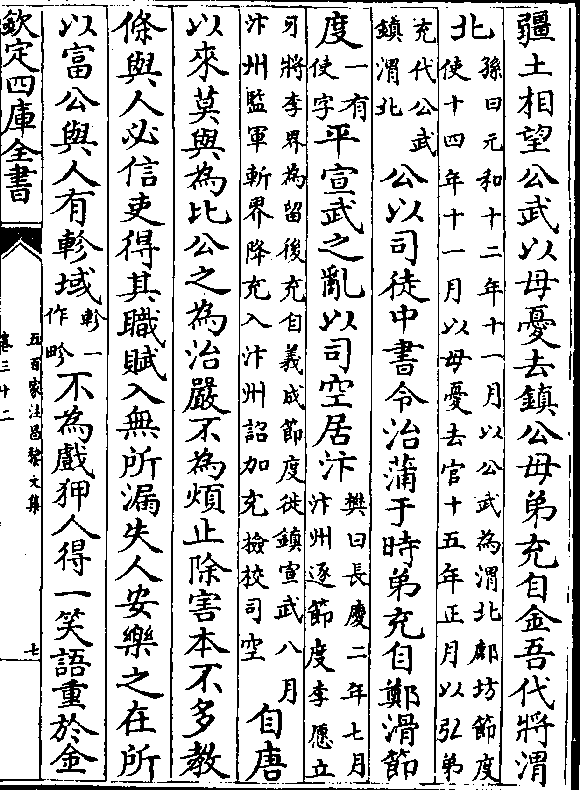 疆土相望公武以母憂去鎮公母弟充自金吾代將渭
北
孫曰元和十二年十一月以公武為渭北鄜坊節度
使十四年十一月以母憂去官十五年正月以弘弟
充代公武
鎮渭北
公以司徒中書令治蒲于時弟充自鄭滑節
度
一有
使字
平宣武之亂以司空居汴
樊曰長慶二年七月
汴州逐節度李愿立
牙將李界為留後充自義成節度徙鎮宣武八月
汴州監軍斬界降充入汴州詔加充檢校司空
自唐
以來莫與為比公之為治嚴不為煩止除害本不多教
條與人必信吏得其職賦入無所漏失人安樂之在所
以富公與人有軫域
軫一
作畛
不為戲狎人得一笑語重於金
欽定四庫全書
五百家注昌黎文集
卷三十二
七